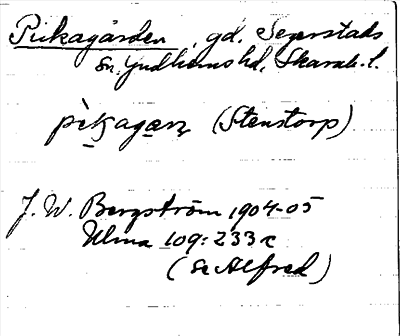 Pukagården, gd. Segerstads
sn, Gudhems hd, Skarab. l.
(Stenstorp)
J. W. Bergström 1904-05
Ulma 109:233 c
(se Alfred)